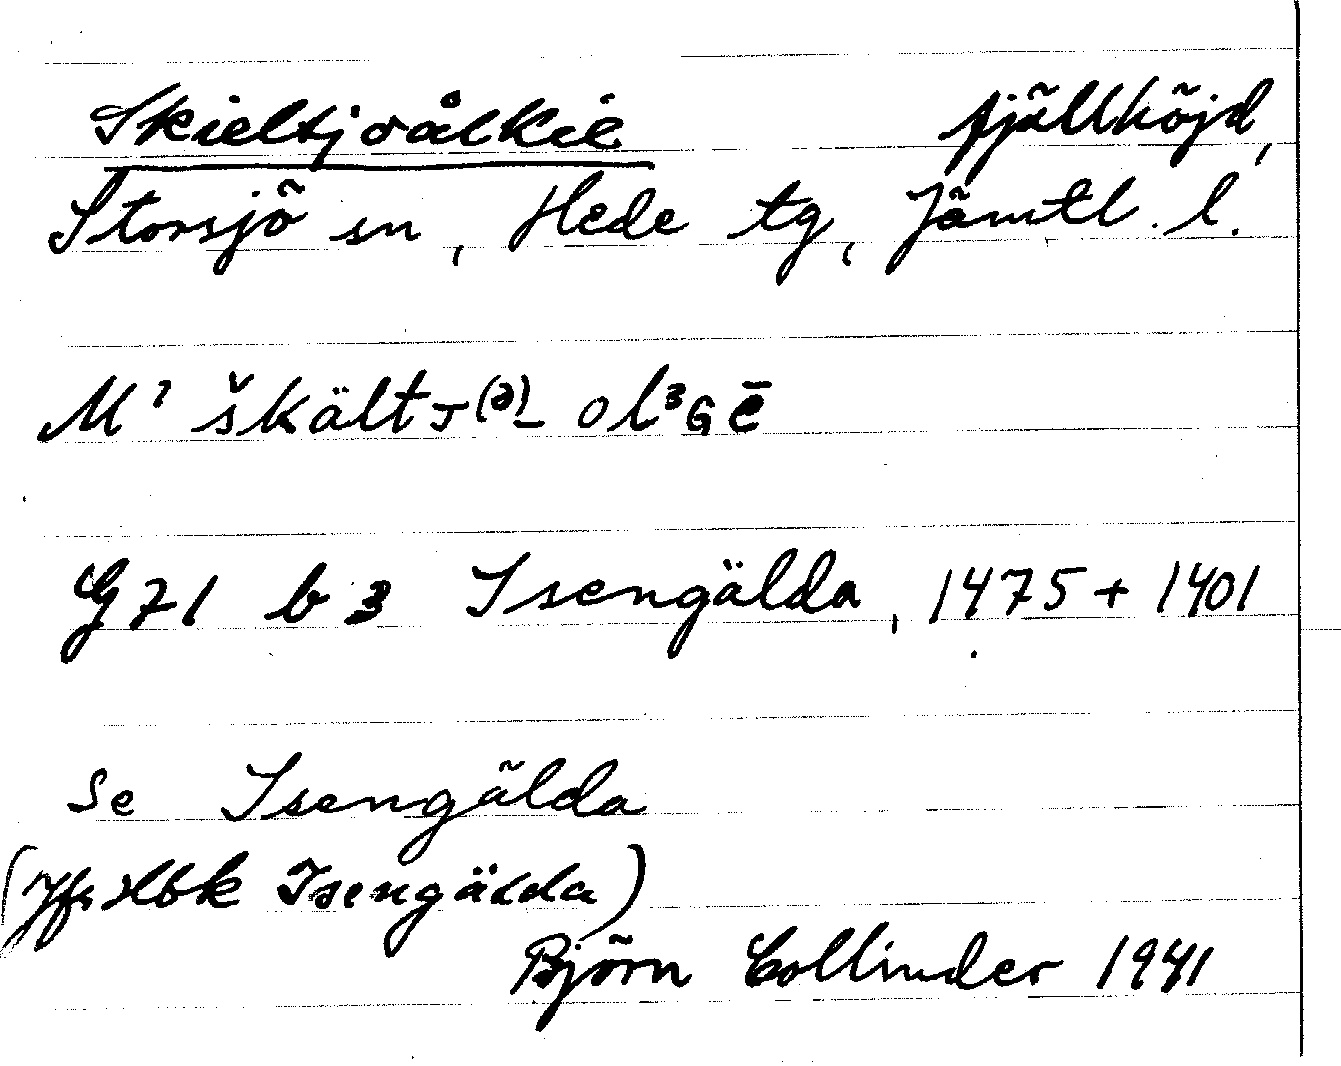 Skieltjoålkie fjällhöjd,
Storsjö sn, Hede tg, Jämtl. l.
M' škältᴊ(ə)- ol³ɢē
G 71 b 3 Isengälda, 1475 + 1401
Se Isengälda
(Jfr Hbk Isengälda)
Björn Collinder 1941